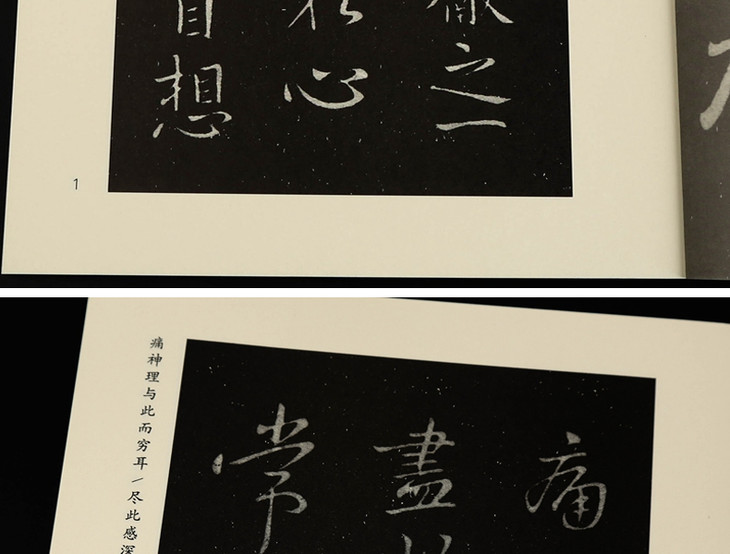 之一
心
想
1
痛
盡
常
痛神理与此而穷耳/尽此感深